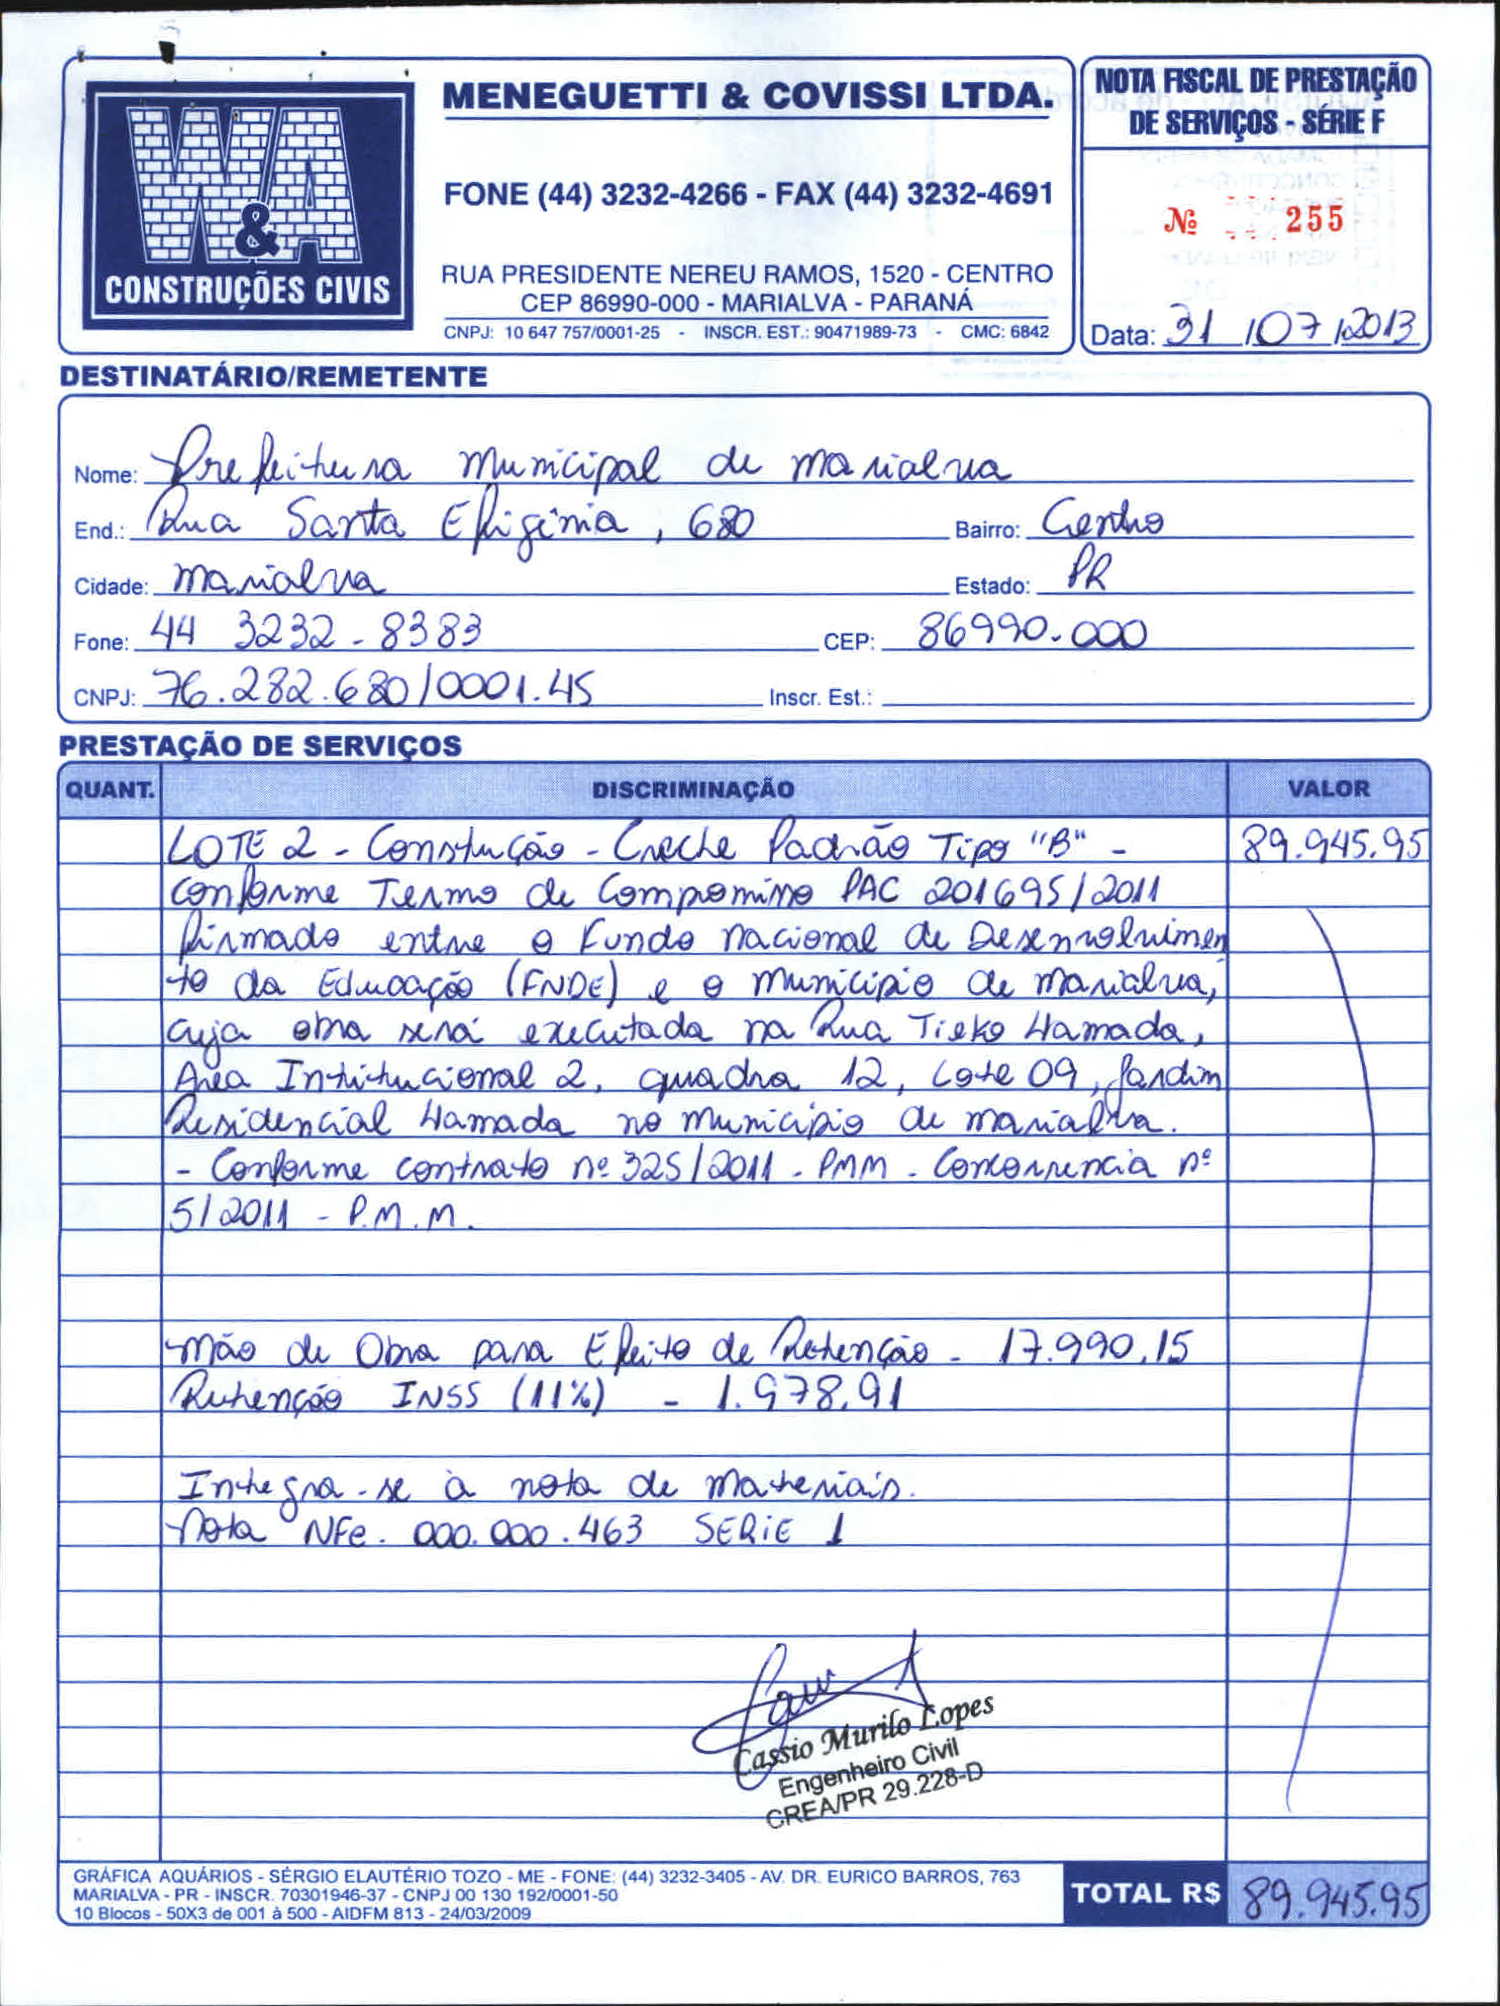 W&A
CONSTRUÇÕES CIVIS
MENEGUETTI & COVISSI LTDA.
FONE (44) 3232-4266 - FAX (44) 3232-4691
RUA PRESIDENTE NEREU RAMOS, 1520 - CENTRO
CEP 86990-000 - MARIALVA - PARANÁ
CNPJ: 10 647 757/0001-25 - INSCR. EST.: 90471989-73 - CMC: 6842
NOTA FISCAL DE PRESTAÇÃO
DE SERVIÇOS - SÉRIE F
Nº 255
Data: 31/07/2013
DESTINATÁRIO/REMETENTE
Nome: Prefeitura Municipal de Marialva
End.: Rua Santa Efigênia, 680 Bairro: Centro
Cidade: Marialva Estado: PR
Fone: 44 3232-8383 CEP: 86990.000
CNPJ: 76.282.680/0001.45 Inscr. Est.:
PRESTAÇÃO DE SERVIÇOS
QUANT. DISCRIMINAÇÃO VALOR
LOTE 2 - Construção - Creche Padrão Tipo "B" - 89.945.95
conforme Termo de Compromisso PAC 201695/2011
firmado entre o Fundo Nacional de Desenvolvimen
to da Educação (FNDE) e o Municipio de Marialva,
cuja obra será executada na Rua Tieko Hamada,
Area Intitucional 2, quadra 12, Lote 09, Jardim
Residencial Hamada no Municipio de Marialva.
- Conforme contrato nº 325/2011 - PMM - Concorrencia nº
5/2011 - P.M.M.
Mão de Obra para Efeito de Retenção - 17.990,15
Retenção INSS (11%) - 1.978,91
Integra-se à nota de Materiais.
Nota NFe. 000.000.463 SERIE 1
Cassio Murilo Lopes
Engenheiro Civil
CREA/PR 29.228-D
GRÁFICA AQUÁRIOS - SÉRGIO ELAUTÉRIO TOZO - ME - FONE: (44) 3232-3405 - AV. DR. EURICO BARROS, 763
MARIALVA - PR - INSCR. 70301946-37 - CNPJ 00 130 192/0001-50
10 Blocos - 50X3 de 001 à 500 - AIDFM 813 - 24/03/2009
TOTAL R$ 89.945.95